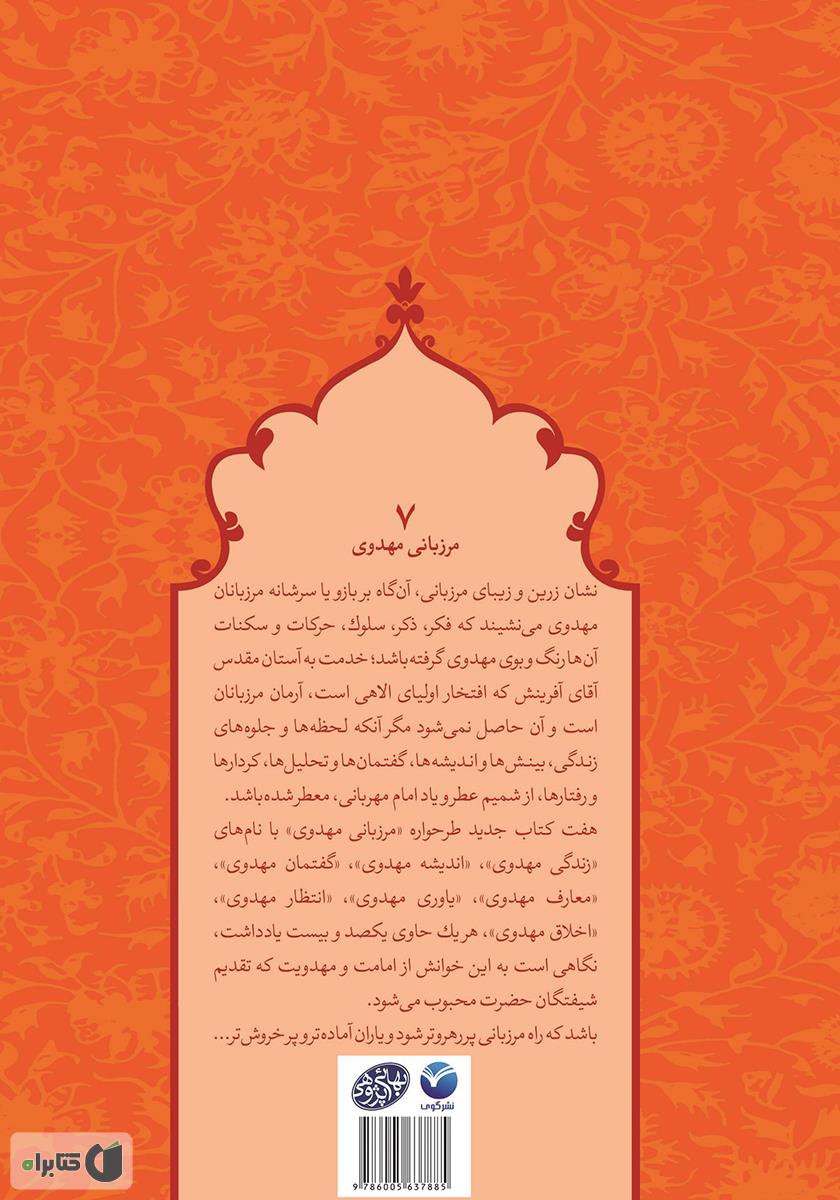 ۷
مرزبانی مهدوی
نشان زرین و زیبای مرزبانی، آن‌گاه بر بازو یا سرشانه مرزبانان
مهدوی می‌نشیند که فکر، ذکر، سلوك، حرکات و سکنات
آن‌ها رنگ و بوی مهدوی گرفته باشد؛ خدمت به آستان مقدس
آقای آفرینش که افتخار اولیای الاهی است، آرمان مرزبانان
است و آن حاصل نمی‌شود مگر آنکه لحظه‌ها و جلوه‌های
زندگی، بینش‌ها و اندیشه‌ها، گفتمان‌ها و تحلیل‌ها، کردارها
و رفتارها، از شمیم عطر و یاد امام مهربانی، معطر شده باشد.
هفت کتاب جدید طرحواره «مرزبانی مهدوی» با نام‌های
«زندگی مهدوی»، «اندیشه مهدوی»، «گفتمان مهدوی»،
«معارف مهدوی»، «یاوری مهدوی»، «انتظار مهدوی»،
«اخلاق مهدوی»، هر یك حاوی یکصد و بیست یادداشت،
نگاهی است به این خوانش از امامت و مهدویت که تقدیم
شیفتگان حضرت محبوب می‌شود.
باشد که راه مرزبانی پر رهروتر شود و یاران آماده‌تر و پر خروش‌تر...
نشر گوی
بهائی پژوهی
9 786005 637885
کتابراه